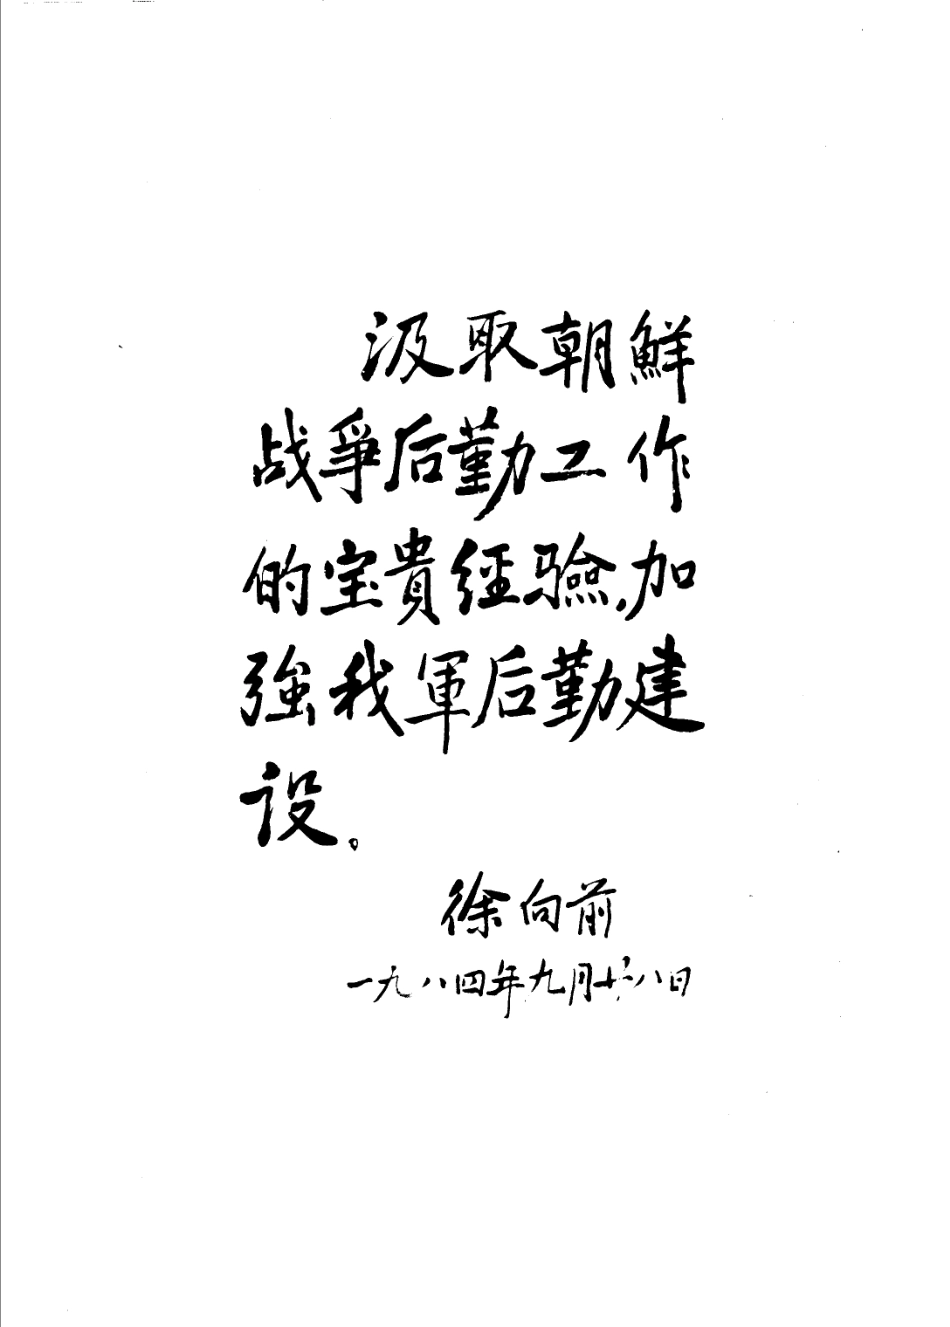 汲取朝鮮
战爭后勤工作
的宝貴経驗,加
強我軍后勤建
设。
徐向前
一九八四年九月十八日